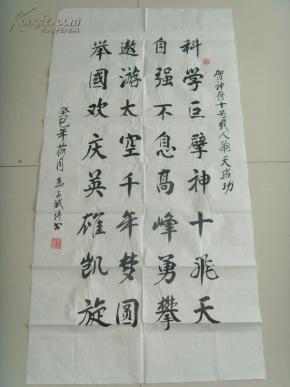 贺神舟十号载人飞天成功
科学巨擘神十飛天
自强不息高峰勇攀
遨游太空千年梦圆
举國欢庆英雄凯旋
癸巳年荷月